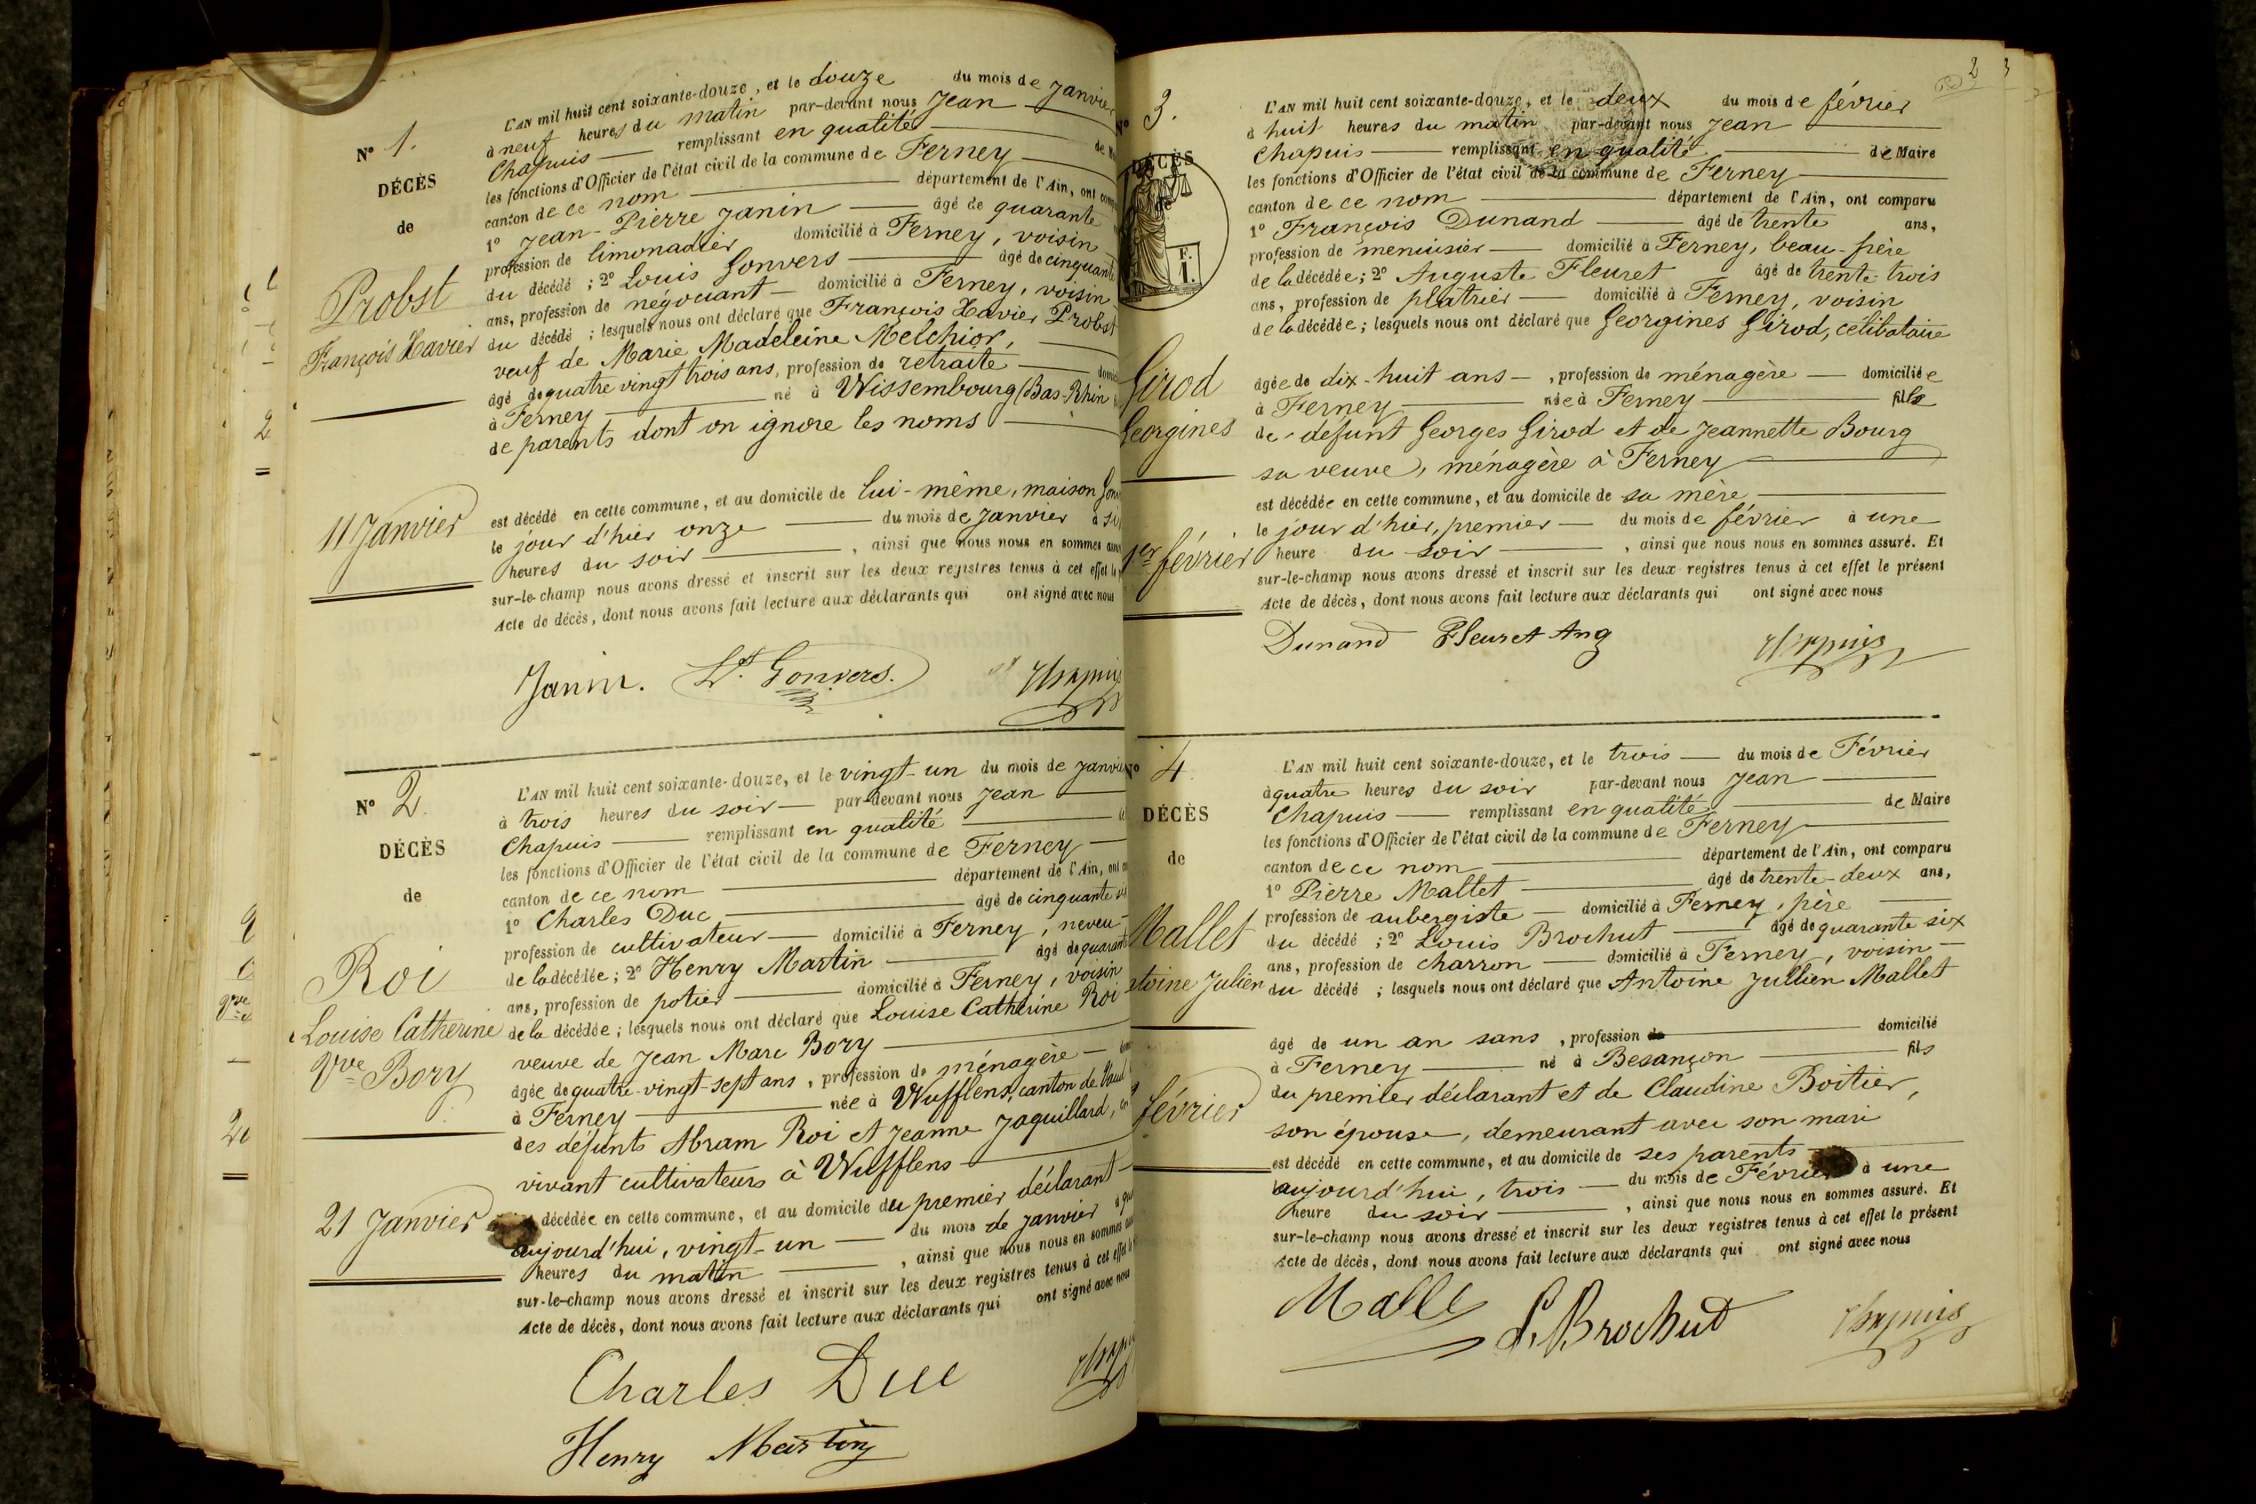 L'AN mil huit cent soixante-douze, et le douze du mois de Janvier
à neuf heures du matin par-devant nous Jean
Chapuis remplissant en qualité
les fonctions d'Officier de l'état civil de la commune de Ferney
canton de ce nom département de l'Ain, ont
1° Jean-Pierre Janin âgé de quarante
profession de limonadier domicilié à Ferney, voisin
du décédé ; 2° Louis Gonvers âgé de cinquante
ans, profession de négociant domicilié à Ferney, voisin
du décédé ; lesquels nous ont déclaré que François Xavier Probst
veuf de Marie Madeleine Melchior,
âgé de quatre vingt trois ans, profession de retraite
à Ferney né à Wissembourg (Bas-Rhin
de parents dont on ignore les noms
est décédé en cette commune, et au domicile de lui-même, maison
le jour d'hier onze du mois de Janvier à
heures du soir , ainsi que nous nous en sommes
sur-le-champ nous avons dressé et inscrit sur les deux registres tenus à cet effet
Acte de décès, dont nous avons fait lecture aux déclarants qui ont signé avec nous
Janin. Ls. Gonvers. Chapuis
N° 1.
DÉCÈS
de
Probst
François Xavier
11 Janvier
N° 2.
DÉCÈS
de
Roi
Louise Catherine
Vve Bory
21 Janvier
L'AN mil huit cent soixante-douze, et le vingt-un du mois de Janvier
à trois heures du soir par-devant nous Jean
Chapuis remplissant en qualité
les fonctions d'Officier de l'état civil de la commune de Ferney
canton de ce nom département de l'Ain, ont
1° Charles Duc âgé de cinquante
profession de cultivateur domicilié à Ferney, neveu
de la décédée ; 2° Henry Martin âgé de
ans, profession de potier domicilié à Ferney, voisin
de la décédée ; lesquels nous ont déclaré que Louise Catherine Roi
veuve de Jean Marc Bory
âgée de quatre-vingt-sept ans, profession de ménagère
à Ferney née à Wufflens, canton de Vaud
des défunts Abram Roi et Jeanne Jaquillard,
vivant cultivateurs à Wufflens
décédée en cette commune, et au domicile du premier déclarant
aujourd'hui, vingt-un du mois de Janvier à
heures du matin , ainsi que nous nous en sommes
sur-le-champ nous avons dressé et inscrit sur les deux registres tenus à cet effet
Acte de décès, dont nous avons fait lecture aux déclarants qui ont signé avec nous
Charles Duc
Henry Martin
2 3
N° 3.
DÉCÈS
de
F.
1.
Girod
Georgines
1er février
L'AN mil huit cent soixante-douze, et le deux du mois de février
à huit heures du matin par-devant nous Jean
Chapuis remplissant en qualité de Maire
les fonctions d'Officier de l'état civil de la commune de Ferney
canton de ce nom département de l'Ain, ont comparu
1° François Dunand âgé de trente ans,
profession de menuisier domicilié à Ferney, beau-frère
de la décédée ; 2° Auguste Fleuret âgé de trente-trois
ans, profession de plâtrier domicilié à Ferney, voisin
de la décédée ; lesquels nous ont déclaré que Georgines Girod, célibataire
âgée de dix-huit ans, profession de ménagère domiciliée
à Ferney née à Ferney fille
de défunt Georges Girod et de Jeannette Bourg
sa veuve, ménagère à Ferney
est décédée en cette commune, et au domicile de sa mère
le jour d'hier, premier du mois de février à une
heure du soir , ainsi que nous nous en sommes assuré. Et
sur-le-champ nous avons dressé et inscrit sur les deux registres tenus à cet effet le présent
Acte de décès, dont nous avons fait lecture aux déclarants qui ont signé avec nous
Dunand Fleuret Aug Chapuis
N° 4
DÉCÈS
de
Mallet
Julien
février
L'AN mil huit cent soixante-douze, et le trois du mois de Février
à quatre heures du soir par-devant nous Jean
Chapuis remplissant en qualité de Maire
les fonctions d'Officier de l'état civil de la commune de Ferney
canton de ce nom département de l'Ain, ont comparu
1° Pierre Mallet âgé de trente-deux ans,
profession de aubergiste domicilié à Ferney, père
du décédé ; 2° Louis Brochut âgé de quarante six
ans, profession de charron domicilié à Ferney, voisin
du décédé ; lesquels nous ont déclaré que Antoine Jullien Mallet
âgé de un an sans, profession de domicilié
à Ferney né à Besançon fils
du premier déclarant et de Claudine Boitier,
son épouse, demeurant avec son mari
est décédé en cette commune, et au domicile de ses parents
aujourd'hui, trois du mois de Février à une
heure du soir , ainsi que nous nous en sommes assuré. Et
sur-le-champ nous avons dressé et inscrit sur les deux registres tenus à cet effet le présent
Acte de décès, dont nous avons fait lecture aux déclarants qui ont signé avec nous
L. Brochut Chapuis